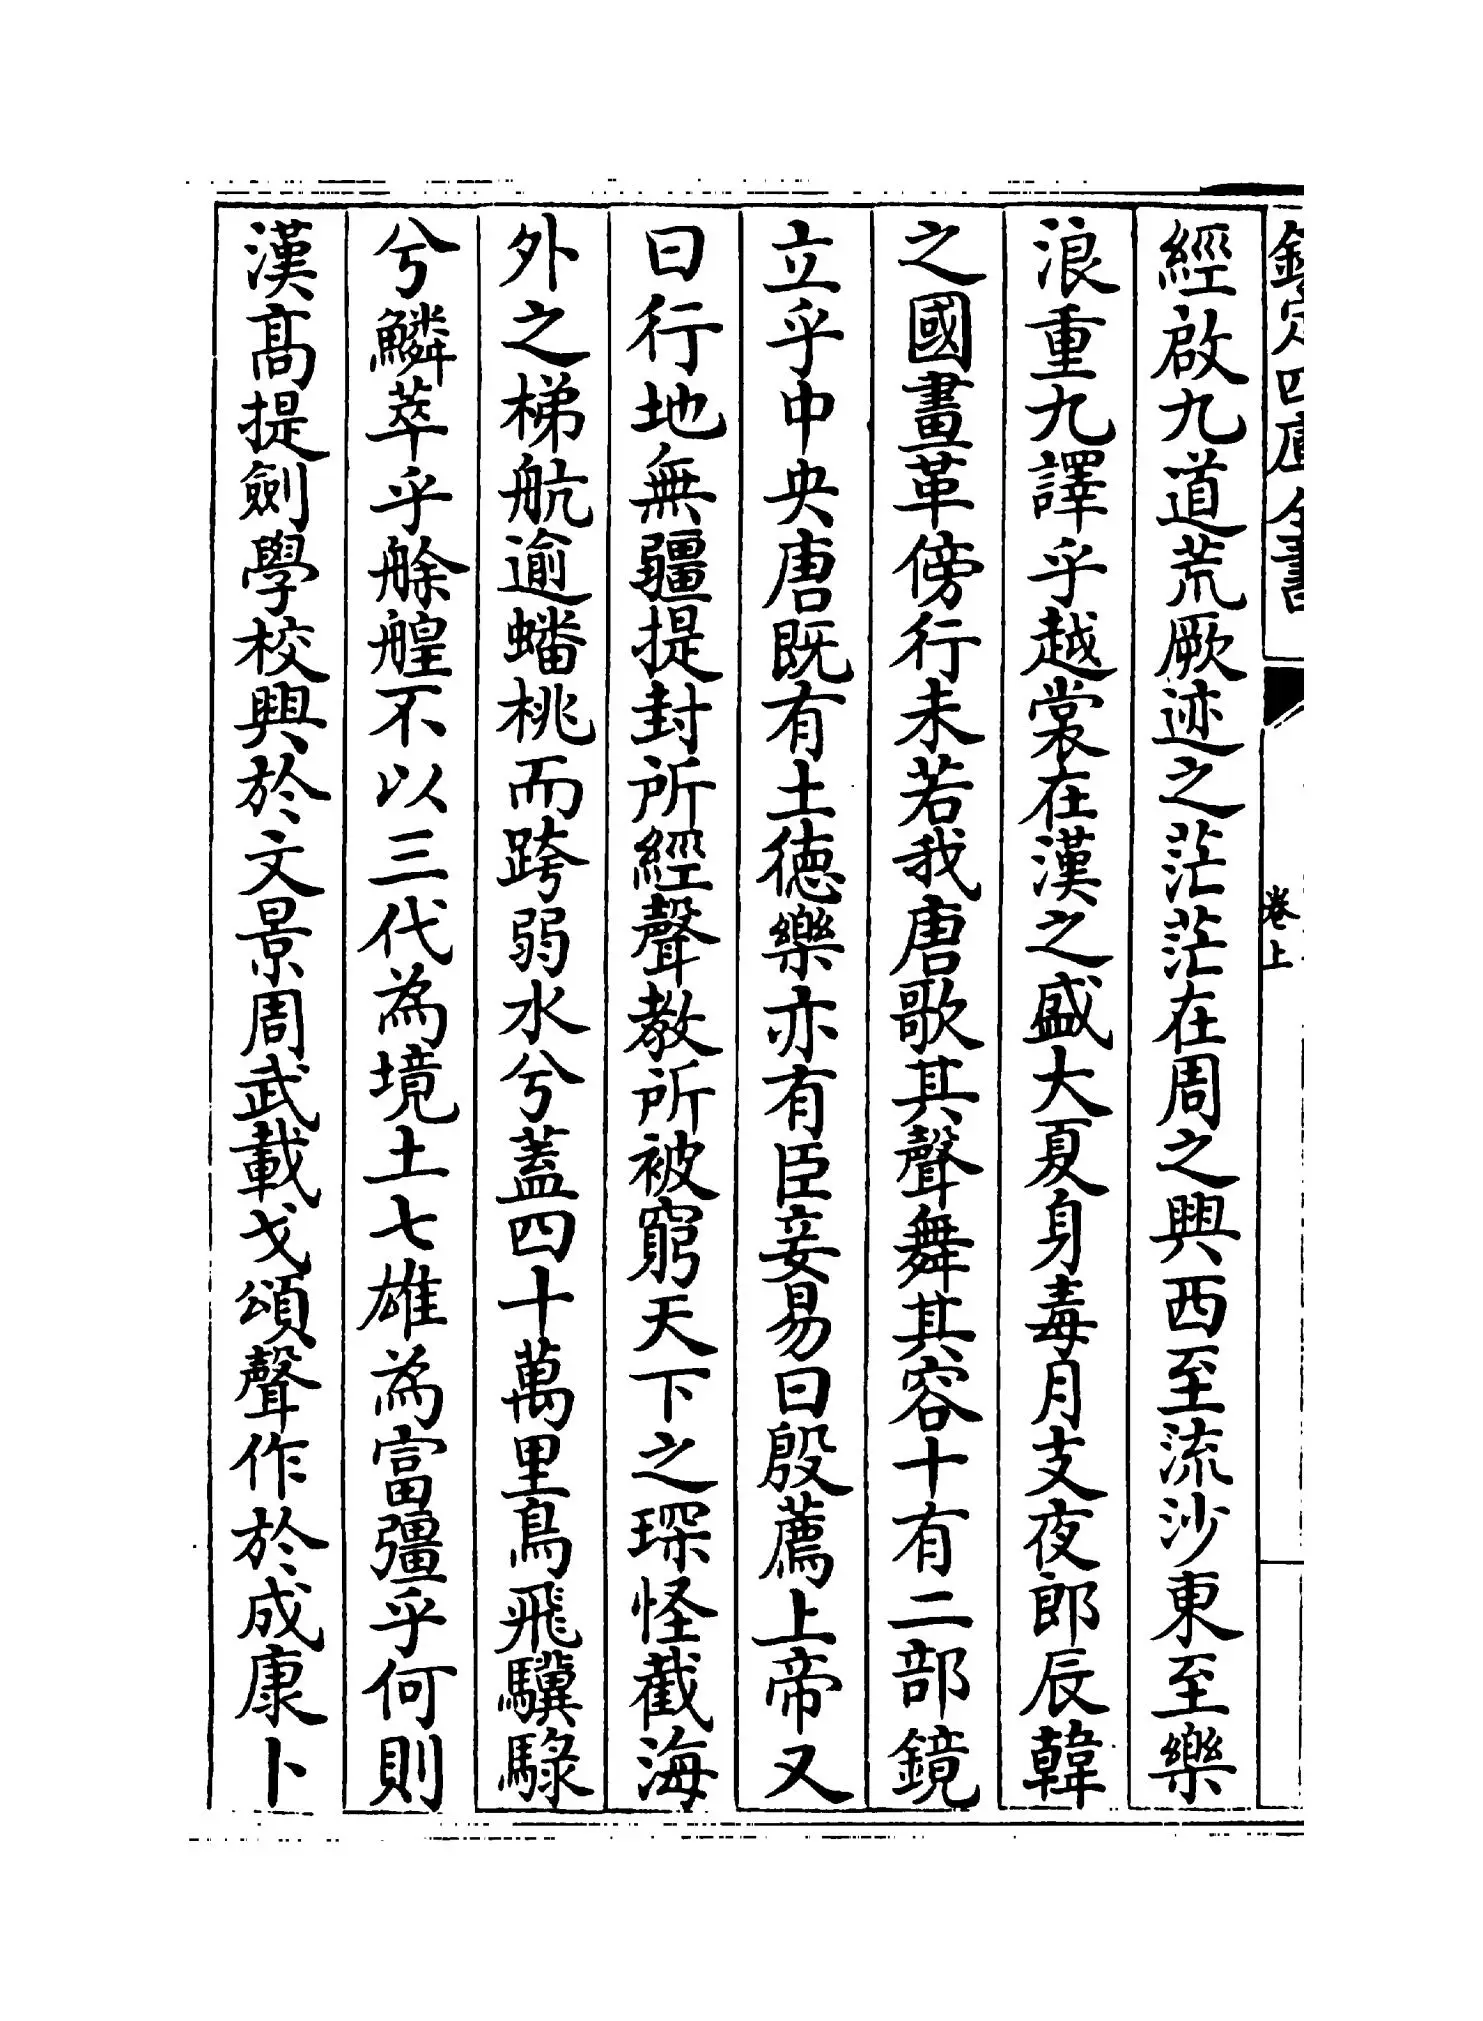 欽定四庫全書
卷上
經啟九道荒厥迹之茫茫在周之興西至流沙東至樂
浪重九譯乎越裳在漢之盛大夏身毒月支夜郎辰韓
之國畫革傍行未若我唐歌其聲舞其容十有二部鏡
立乎中央唐既有土德樂亦有臣妾易曰殷薦上帝又
曰行地無疆提封所經聲教所被窮天下之琛怪截海
外之梯航逾蟠桃而跨弱水兮蓋四十萬里鳥飛驥騄
兮鱗萃乎艅艎不以三代為境土七雄為富彊乎何則
漢高提劍學校興於文景周武載戈頌聲作於成康卜